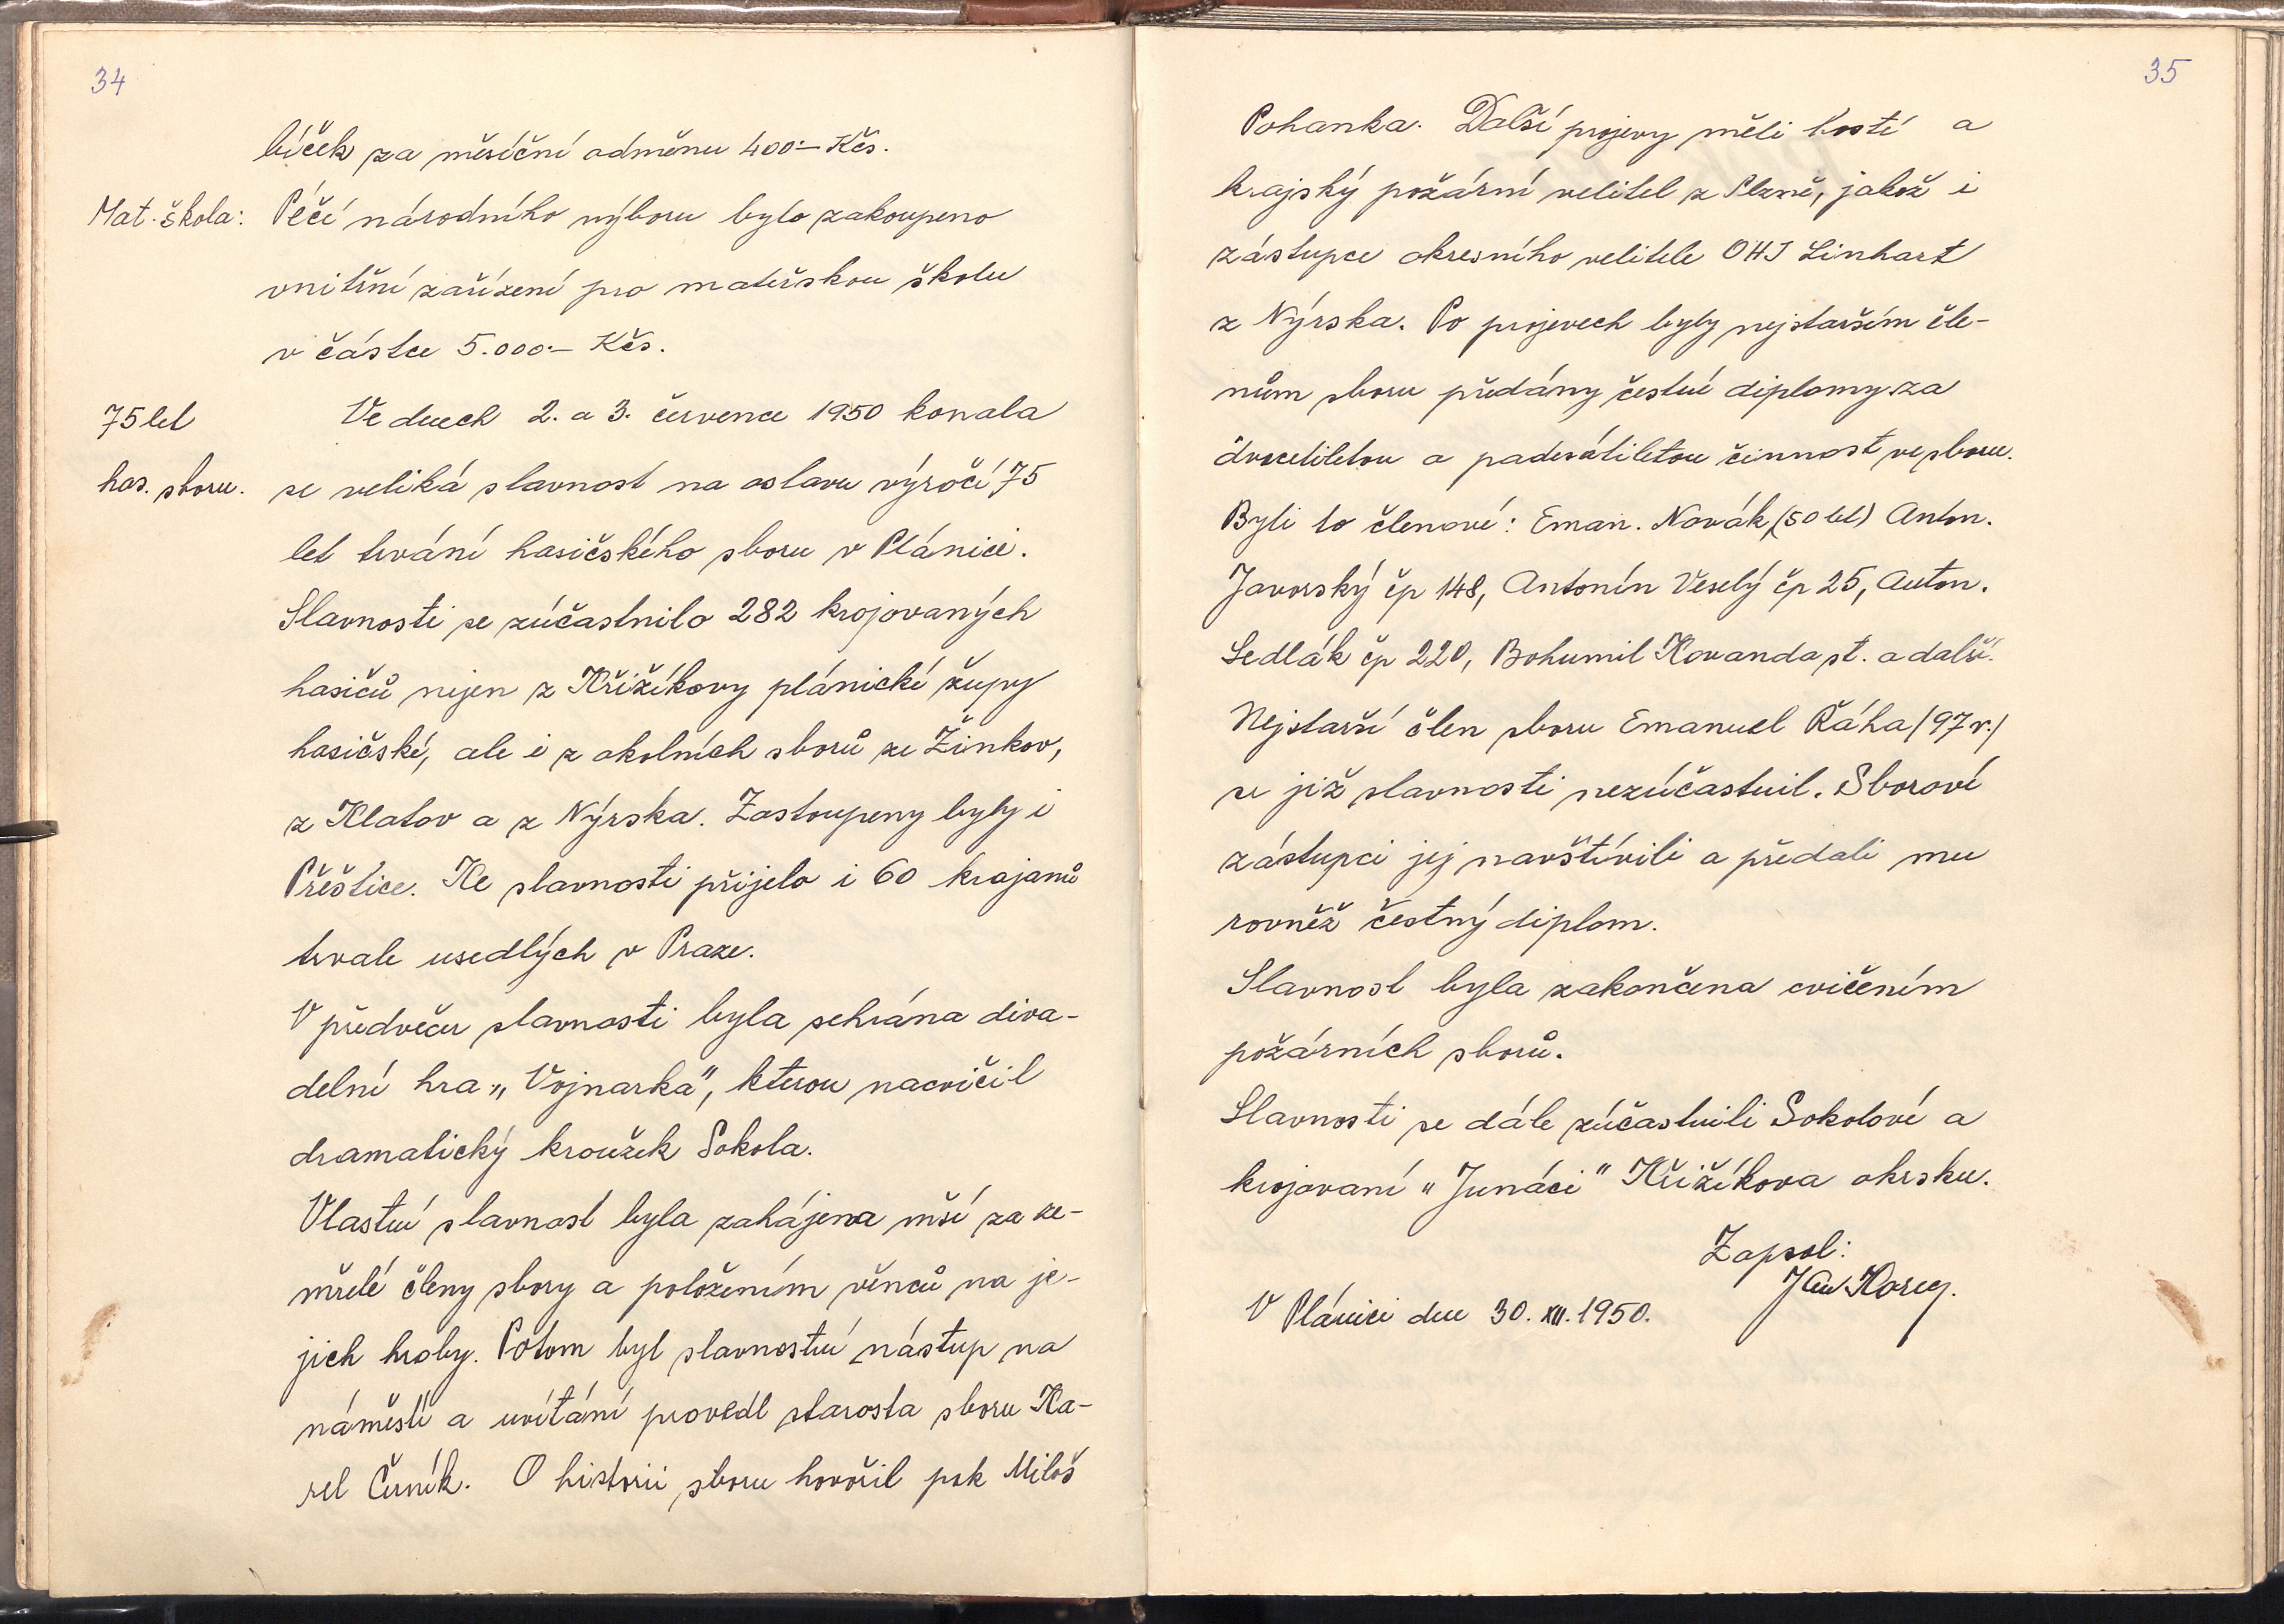 34
bíček za měsíční odměnu 400·– Kčs.
Mat. škola: Péčí národního výboru bylo zakoupeno
vnitřní zařízení pro mateřskou školu
v částce 5.000·– Kčs.
75 let Ve dnech 2. a 3. července 1950 konala
has. sboru. se veliká slavnost na oslavu výročí 75
let trvání hasičského sboru v Plánici.
Slavnosti se zúčastnilo 282 krojovaných
hasičů nejen z Křižíkovy plánické župy
hasičské, ale i z okolních sborů ze Žinkov,
z Klatov a z Nýrska. Zastoupeny byly i
Přeštice. Ke slavnosti přijelo i 60 krajanů
trvale usedlých v Praze.
V předvečer slavnosti byla sehrána diva-
delní hra „Vojnarka", kterou nacvičil
dramatický kroužek Sokola.
Vlastní slavnost byla zahájena mší za ze-
mřelé členy sbory a položením věnců na je-
jich hroby. Potom byl slavnostní nástup na
náměstí a uvítání provedl starosta sboru Ka-
rel Černík. O historii sboru hovořil pak Miloš
35
Pohanka. Další projevy měli hosté a
krajský požární velitel z Plzně, jakož i
zástupce okresního velitele OHJ Linhart
z Nýrska. Po projevech byly nejstarším čle-
nům sboru předány čestné diplomy za
dvacetiletou a padesátiletou činnost ve sboru.
Byli to členové: Eman. Novák (50 let) Anton.
Javorský čp 148, Antonín Veselý čp 25, Anton.
Sedlák čp 220, Bohumil Kovanda st. a další.
Nejstarší člen sboru Emanuel Řáha /97 r./
se již slavnosti nezúčastnil. Sboroví
zástupci jej navštívili a předali mu
rovněž čestný diplom.
Slavnost byla zakončena cvičením
požárních sborů.
Slavnosti se dále zúčastnili Sokolové a
krojovaní "Junáci" Křižíkova okrsku.
Zapsal:
Jan
V Plánici dne 30. XII. 1950.